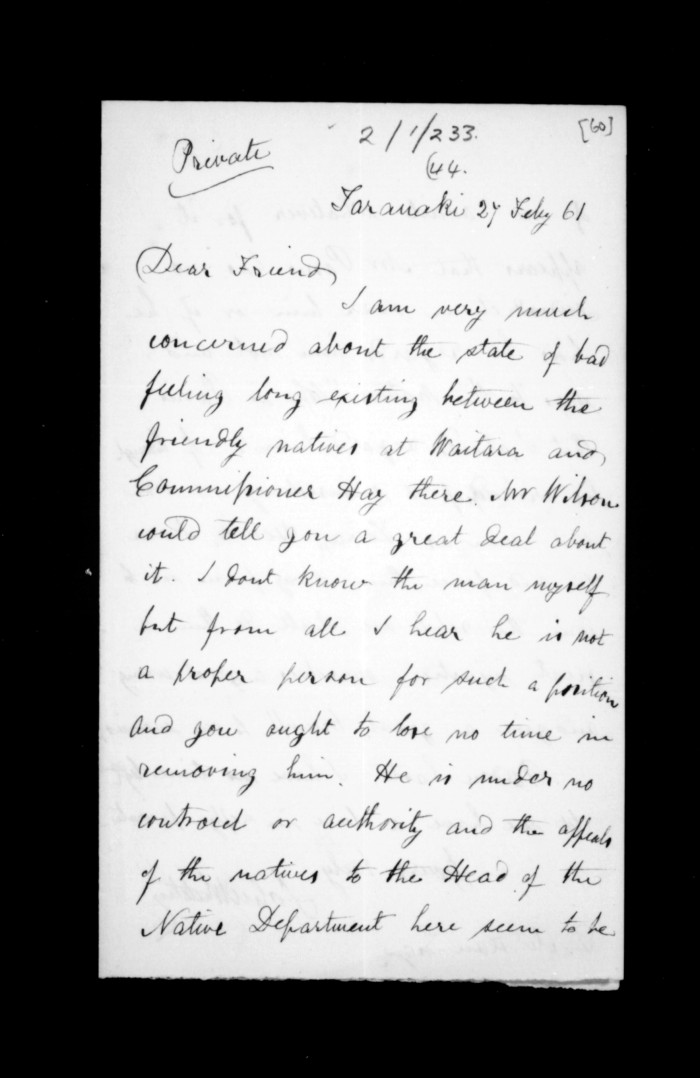 [60]
2/1/233.
Private
(44.
Taranaki 27 Feby 61
Dear Friend
I am very much
concerned about the state of bad
feeling long existing between the
friendly natives at Waitara and
Commissioner Hay there. Mr Wilson
could tell you a great deal about
it. I dont know the man myself
but from all I hear he is not
a proper person for such a position
and you ought to lose no time in
removing him. He is under no
controul or authority and the appeals
of the natives to the Head of the
Native Department here seem to be